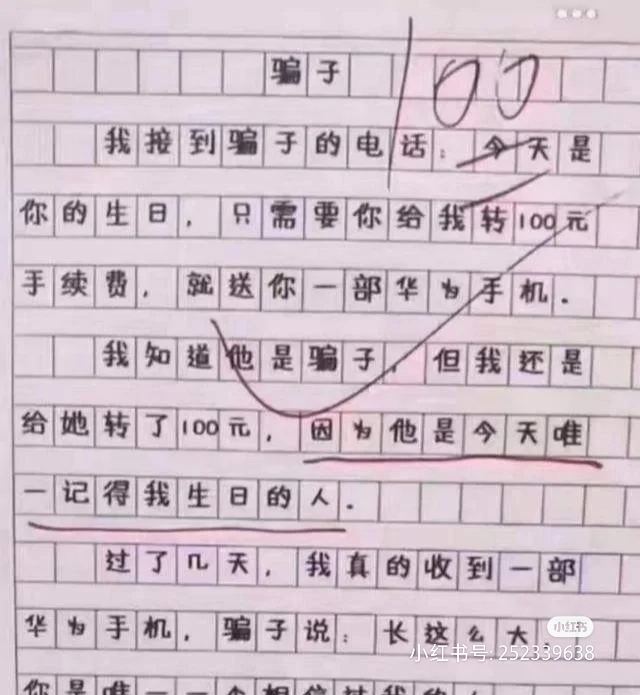 骗子 100
我接到骗子的电话：今天是
你的生日，只需要你给我转100元
手续费，就送你一部华为手机．
我知道他是骗子，但我还是
给她转了100元，因为他是今天唯
一记得我生日的人．
过了几天，我真的收到一部
华为手机，骗子说：长这么大，
小红书
小红书号：252339638
你是唯一一个相信过我的人